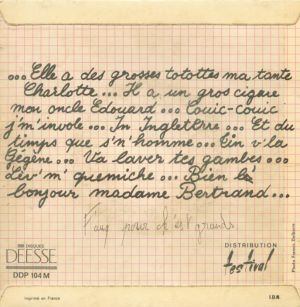 ... Elle a des grosses totottes ma tante
Charlotte ... Il a un gros cigare
mon oncle Edouard ... Couic-couic
j'm'invole ... In Inglettrre ... Et du
timps que s'n'homme ... Ein v'la
Gégène ... Va laver tes gambes ...
Lèv' m' quemiche ... Bien le
bonjour madame Bertrand ...
pour grands
DISQUES
DEESSE
DDP 104 M
DISTRIBUTION
festival
Imprimé en France